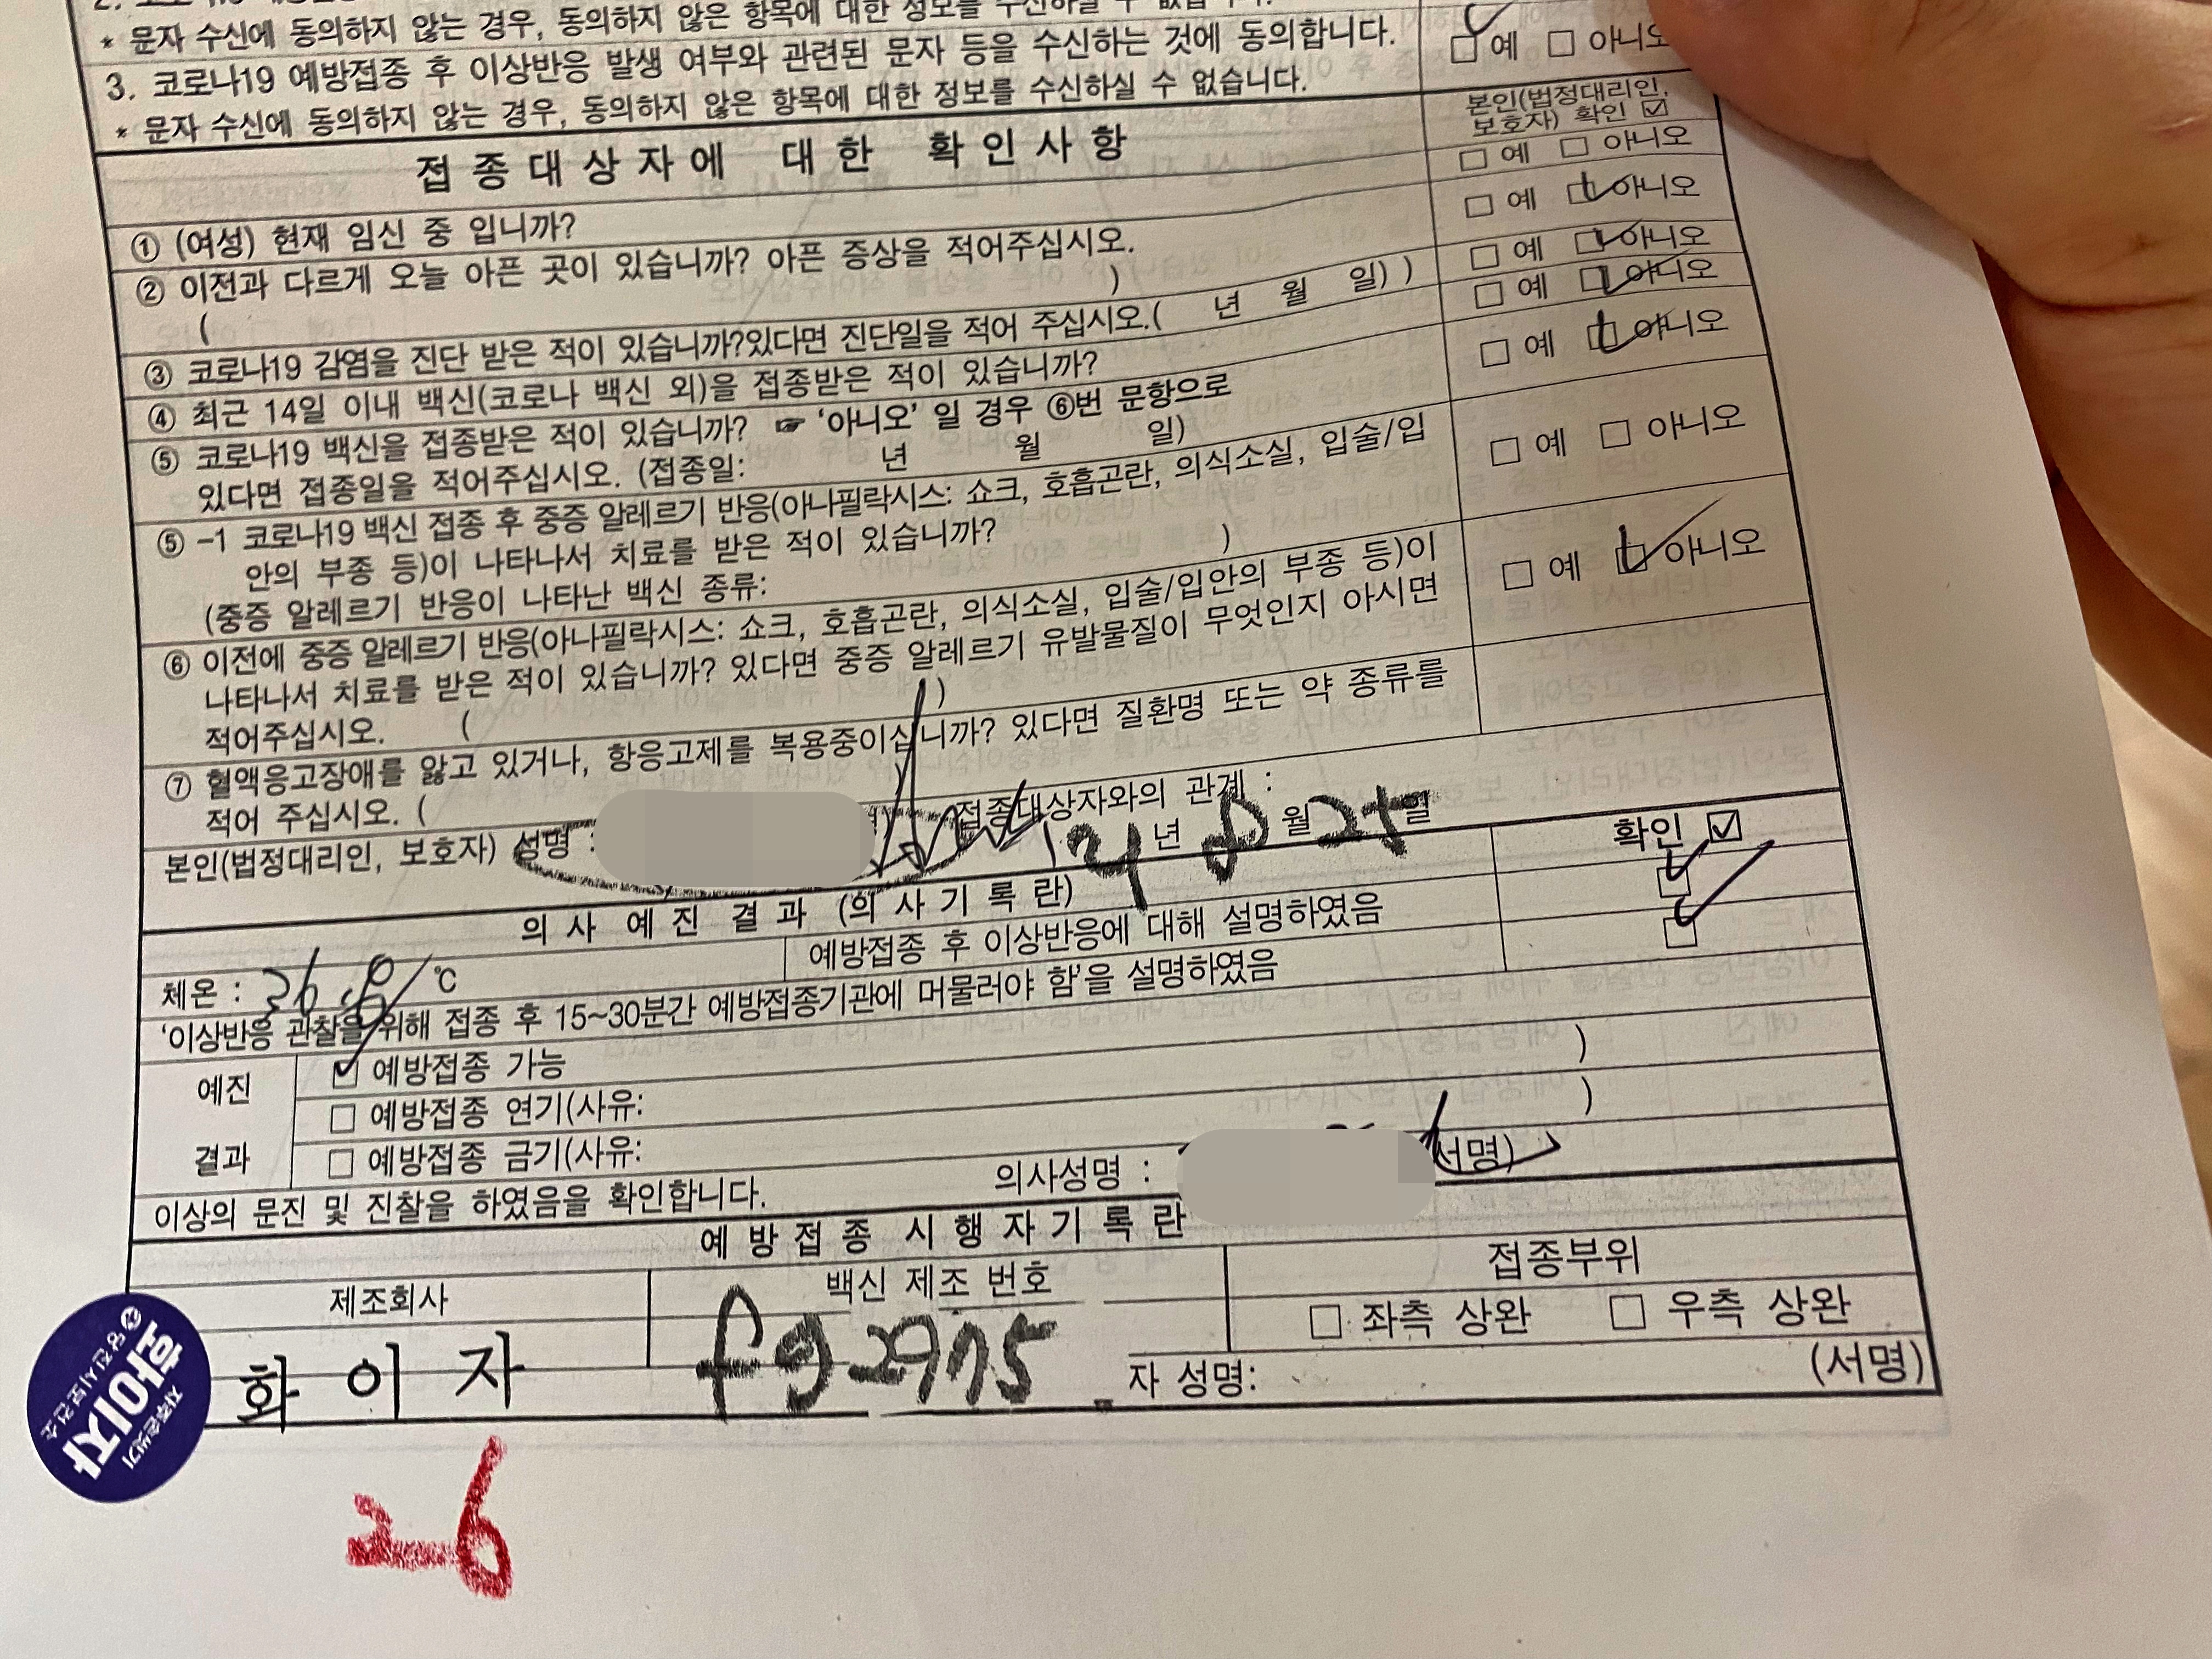 * 문자 수신에 동의하지 않는 경우, 동의하지 않은 항목에 대한 정보를 수신하실 수 없습니다.
3. 코로나19 예방접종 후 이상반응 발생 여부와 관련된 문자 등을 수신하는 것에 동의합니다. □ 예 □ 아니오
* 문자 수신에 동의하지 않는 경우, 동의하지 않은 항목에 대한 정보를 수신하실 수 없습니다.
접종대상자에 대한 확인사항
본인(법정대리인,
보호자) 확인 ☑
① (여성) 현재 임신 중 입니까? □ 예 □ 아니오
② 이전과 다르게 오늘 아픈 곳이 있습니까? 아픈 증상을 적어주십시오. □ 예 □ 아니오
( )
③ 코로나19 감염을 진단 받은 적이 있습니까?있다면 진단일을 적어 주십시오.( 년 월 일) ) □ 예 □ 아니오
④ 최근 14일 이내 백신(코로나 백신 외)을 접종받은 적이 있습니까? □ 예 □ 아니오
⑤ 코로나19 백신을 접종받은 적이 있습니까? ☞ '아니오' 일 경우 ⑥번 문항으로 □ 예 □ 아니오
있다면 접종일을 적어주십시오. (접종일: 년 월 일)
⑤ -1 코로나19 백신 접종 후 중증 알레르기 반응(아나필락시스: 쇼크, 호흡곤란, 의식소실, 입술/입 □ 예 □ 아니오
안의 부종 등)이 나타나서 치료를 받은 적이 있습니까?
(중증 알레르기 반응이 나타난 백신 종류: )
⑥ 이전에 중증 알레르기 반응(아나필락시스: 쇼크, 호흡곤란, 의식소실, 입술/입안의 부종 등)이 □ 예 □ 아니오
나타나서 치료를 받은 적이 있습니까? 있다면 중증 알레르기 유발물질이 무엇인지 아시면
적어주십시오. ( )
⑦ 혈액응고장애를 앓고 있거나, 항응고제를 복용중이십니까? 있다면 질환명 또는 약 종류를
적어 주십시오. (
본인(법정대리인, 보호자) 성명 : 접종대상자와의 관계 :
년 8 월 일
의 사 예 진 결 과 (의 사 기 록 란) 확인 ☑
체온 : 36.8 ℃ 예방접종 후 이상반응에 대해 설명하였음
'이상반응 관찰을 위해 접종 후 15~30분간 예방접종기관에 머물러야 함'을 설명하였음
예진
결과
예방접종 가능
□ 예방접종 연기(사유: )
□ 예방접종 금기(사유: )
이상의 문진 및 진찰을 하였음을 확인합니다. 의사성명 : 서명)
예 방 접 종 시 행 자 기 록 란
제조회사 백신 제조 번호 접종부위
화 이 자 fg2975 □ 좌측 상완 □ 우측 상완
자 성명: (서명)
당진시보건소
화이자
자주손씻기
2-6